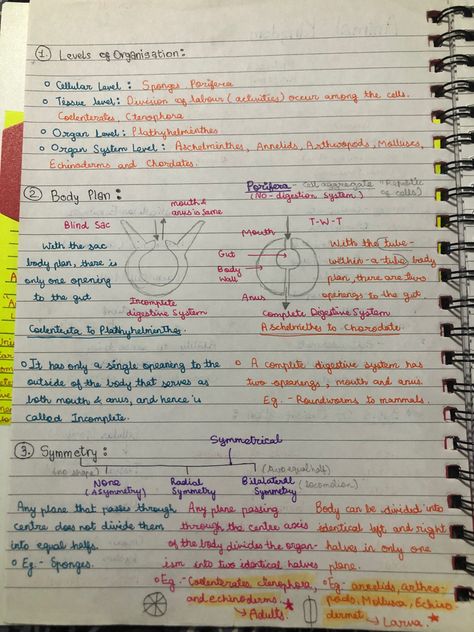 ① Levels of Organisation:
Cellular Level: Sponges, Porifera
Tissue level: Division of labour (activities) occur among the cells.
Coelenterates, Ctenophora
Organ Level: Plathyhelminthes
Organ System Level: Aschelminthes, Annelids, Arthropods, Molluscs,
Echinoderms and Chordates.
② Body Plan:
Porifera - Cell aggregate "Republic of cells)
(NO-digestion system)
mouth &
anus is same
Blind Sac
T-W-T
Mouth
With the sac
body plan, there is
only one opening
to the gut
Gut
Body
Wall
Anus
With the tube-
within-a-tube body
plan, there are two
openings to the gut.
Incomplete
digestive System
Complete Digestive System
Coelenteta to Plathyhelminthes.
Aschelmethes to Chordate.
It has only a single opeaning to the
outside of the body that serves as
both mouth & anus, and hence is
called Incomplete.
A complete digestive system has
two openings, mouth and anus
Eg. - Roundworms to mammals.
③. Symmetry:
Symmetrical
(no shape)
(two equal half)
None
(Asymmetry)
Radial
Symmetry
Bilalateral
Symmetry
(Locomotion)
Any plane that passes through
centre does not divide them
into equal halfs.
Eg. - Sponges.
Any plane passing
through the centre axis
of the body divides the organ-
ism into two identical halves
Eg - Coelenterates, ctenophora,
and echinoderms.
→ Adults.
Body can be divided into
identical left and right
halves in only one
plane.
Eg: - annelids, arthro
pods, Mollusca, Echino
dermet → Larva.